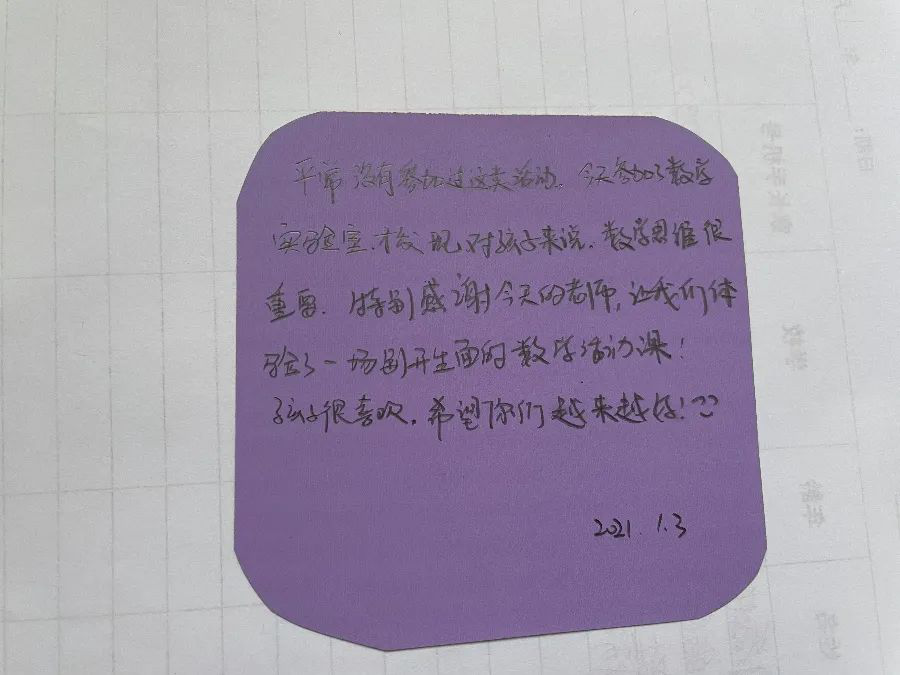 平常没有参加过这类活动。今天参加了数学
实验室，才发现，对孩子来说，数学思维很
重要。特别感谢今天的老师，让我们体
验了一场别开生面的数学活动课！
孩子很喜欢，希望你们越来越好！
2021.1.3